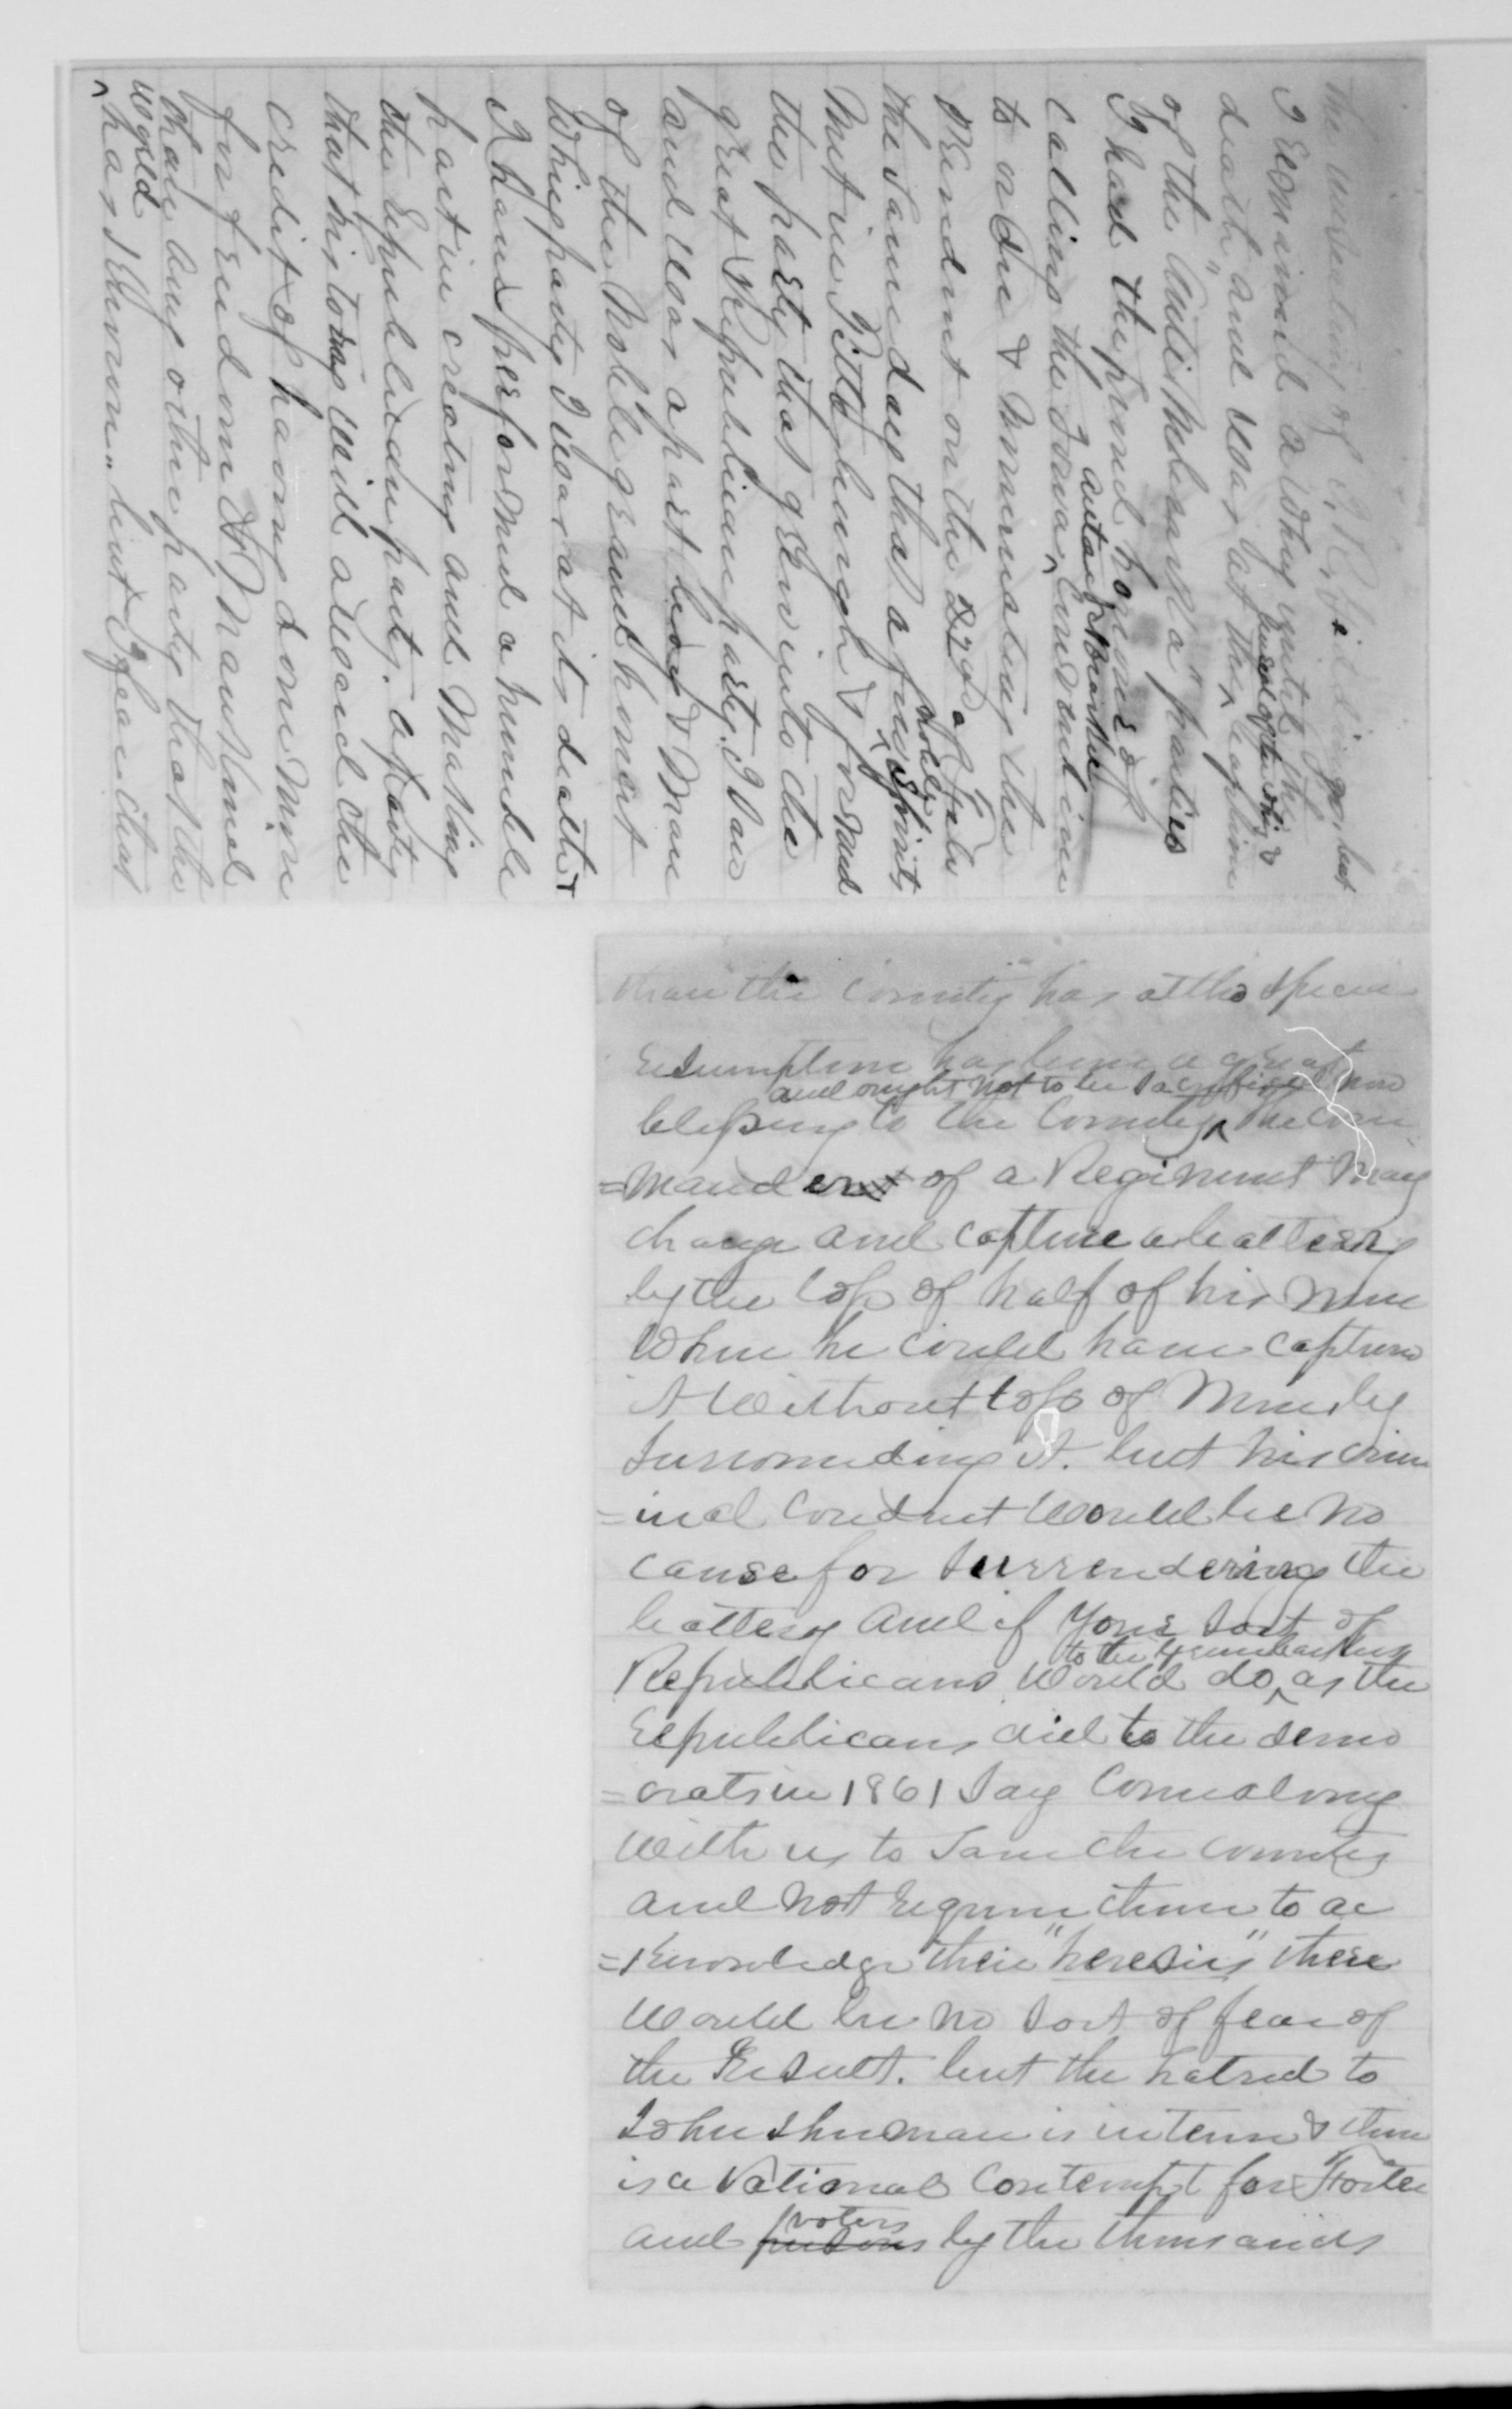 the unseating of J. R. Giddings, but
I remained a Whig until the
death, and was at the ^ baptism
funeral of the whig &
of the "Anti Nebraska" parties
I had the proud honor of
calling the Iowa ^ Convention
anti Nebraska
to order & nominating the
President on the 22nd of Feb
the same day that a few ^ Spirits
noble
met in Pittsburgh & formed
the party that grew into the
great Republican party. I saw
and was a part of & man
of the noble grand honest
Whig party I was at its death &
I have performed a humble
part in creating and making
the republican party. a party
that history will award the
credit of having done more
for freedom & Mankind
than any other party that the
world
^ has Known. but I fear that
than the country has at the specie
resumption has been a great
and ought not to be sacrificed now
blessing to the Country ^ the com
=mander of a Regiment may
charge and capture a battery
by the loss of half of his men
When he could have captured
it Without loss of men by
surrounding it. but his crim
=inal conduct Would be no
cause for surrendering the
battery and if your sort of
Republicans Would do ^ as the
to the Greenbackers
republicans did to the demo
=crats in 1861 say Come along
With us to save the country
and not require them to ac
=knowledge their "heresies" there
Would be no sort of fear of
the result. but the hatred to
John Sherman is intense & there
is a National Contempt for Foster
and voters by the thousands